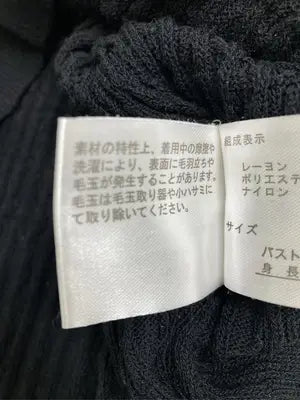 素材の特性上、着用中の摩擦や
洗濯により、表面に毛羽立ちや
毛玉が発生することがあります。
毛玉は毛玉取り器や小ハサミに
て取り除いてください。
組成表示
レーヨン
ポリエステ
ナイロン
サイズ
バスト
身長